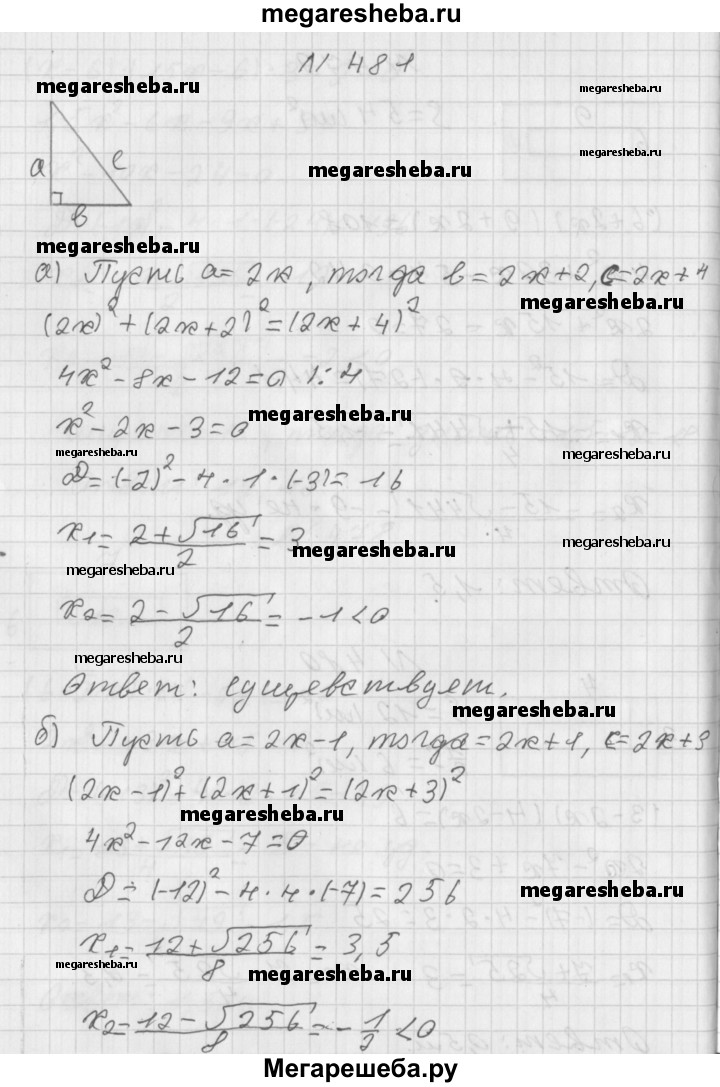 megaresheba.ru
N 481
megaresheba.ru
megaresheba.ru
a
c
megaresheba.ru
в
megaresheba.ru
а) Пусть a = 2x, тогда в = 2x+2, c=2x+4
megaresheba.ru
(2x)² + (2x+2)² = (2x+4)²
4x² - 8x - 12 = 0 |:4
megaresheba.ru
x² - 2x - 3 = 0
megaresheba.ru
D = (-2)² - 4 · 1 · (-3) = 16
x₁ = (2 + √16)/2 = 3
megaresheba.ru
megaresheba.ru
megaresheba.ru
x₂ = (2 - √16)/2 = -1 < 0
megaresheba.ru
Ответ: существует.
megaresheba.ru
б) Пусть a = 2x-1, тогда = 2x+1, c=2x+3
(2x-1)² + (2x+1)² = (2x+3)²
megaresheba.ru
megaresheba.ru
4x² - 12x - 7 = 0
D = (-12)² - 4 · 4 · (-7) = 256
megaresheba.ru
x₁ = (12 + √256)/8 = 3,5
megaresheba.ru
megaresheba.ru
megaresheba.ru
x₂ = (12 - √256)/8 = -1/2 < 0
Мегарешеба.ру